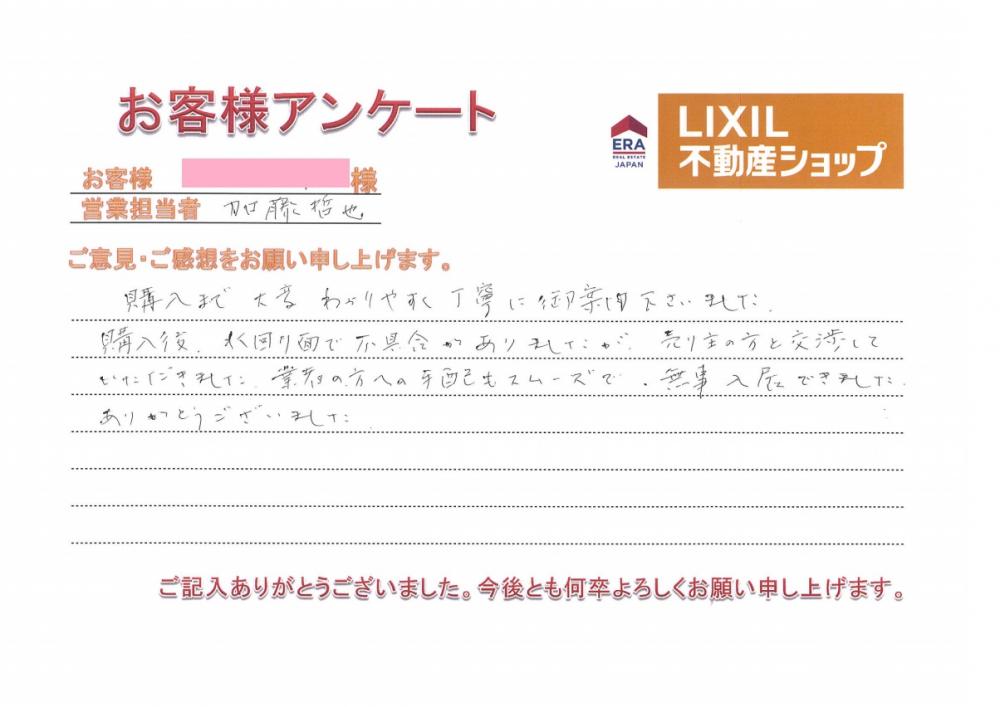 お客様アンケート
ERA
REAL ESTATE
JAPAN
LIXIL
不動産ショップ
お客様 様
営業担当者 加藤哲也
ご意見・ご感想をお願い申し上げます。
購入まで 大変 わかりやすく丁寧に御案内下さいました。
購入後、水回り面で不具合がありましたが、売り主の方と交渉して
いただきました。業者の方への手配もスムーズで、無事入居できました。
ありがとうございました。
ご記入ありがとうございました。今後とも何卒よろしくお願い申し上げます。